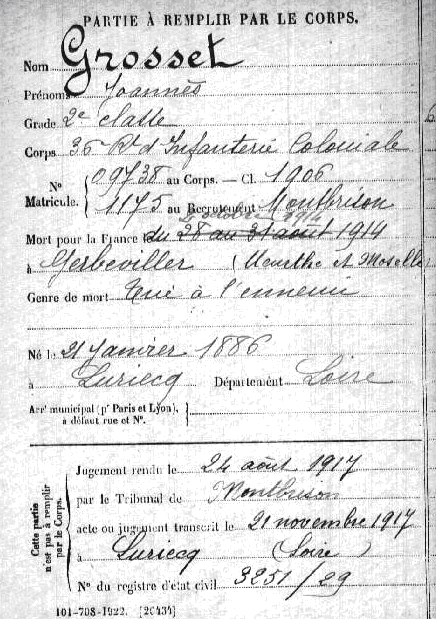 PARTIE À REMPLIR PAR LE CORPS.
Nom Grosset
Prénoms Joannès
Grade 2e classe
Corps 36 Rt d'Infanterie Coloniale
No Matricule. 09738 au Corps. — Cl. 1906
1175 au Recrutement Montbrison
octobre 1914
Mort pour la France du 28 au 31 août 1914
à Gerbeviller (Meurthe et Moselle
Genre de mort Tué à l'ennemi
Né le 21 Janvier 1886
à Luriecq Département Loire
Arrt municipal (pr Paris et Lyon),
à défaut rue et No.
Cette partie n'est pas à remplir par le Corps.
Jugement rendu le 24 août 1917
par le Tribunal de Montbrison
acte ou jugement transcrit le 21 novembre 1917
à Luriecq (Loire)
No du registre d'état civil 3251/29
101-708-1922. [26434]